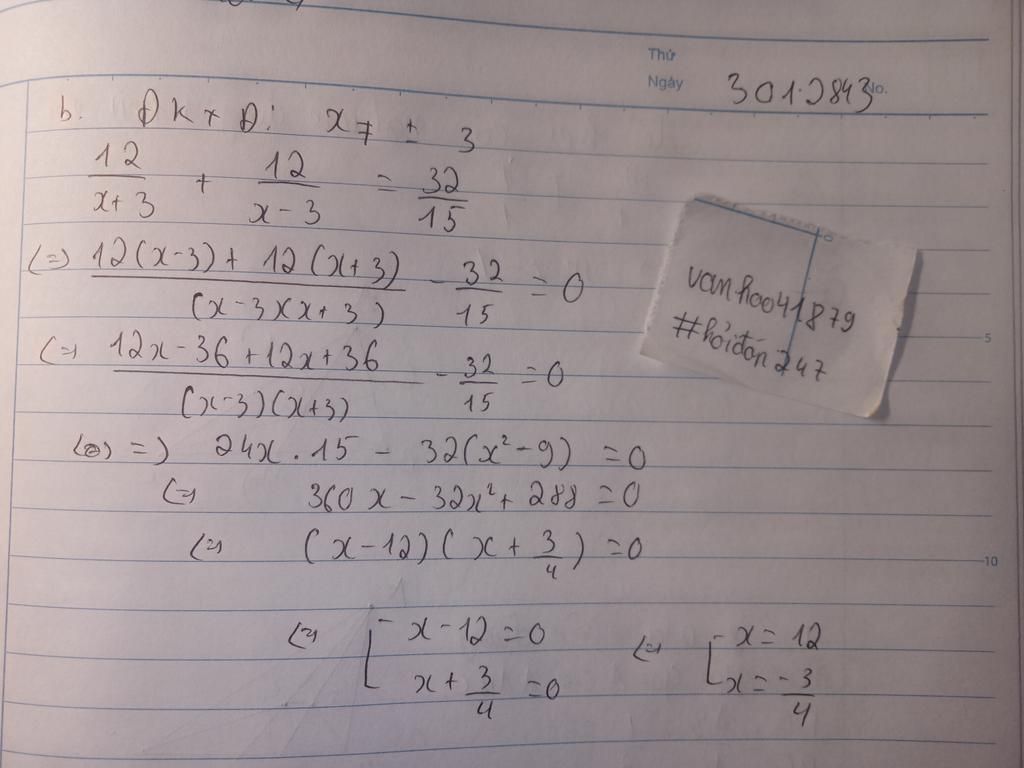 Thứ
Ngày 301.2843 No.
b. ĐKXĐ: x ≠ ± 3
12/(x+3) + 12/(x-3) = 32/15
(=) (12(x-3) + 12(x+3))/((x-3)(x+3)) - 32/15 = 0
(=) (12x-36+12x+36)/((x-3)(x+3)) - 32/15 = 0
=) 24x.15 - 32(x²-9) = 0
(=) 360x - 32x² + 288 = 0
(=) (x-12)(x+3/4) = 0
(=) [ x-12=0 (=) [ x=12
x+3/4=0 x=-3/4
vanhoo41879
#hỏiđáp247
5
10